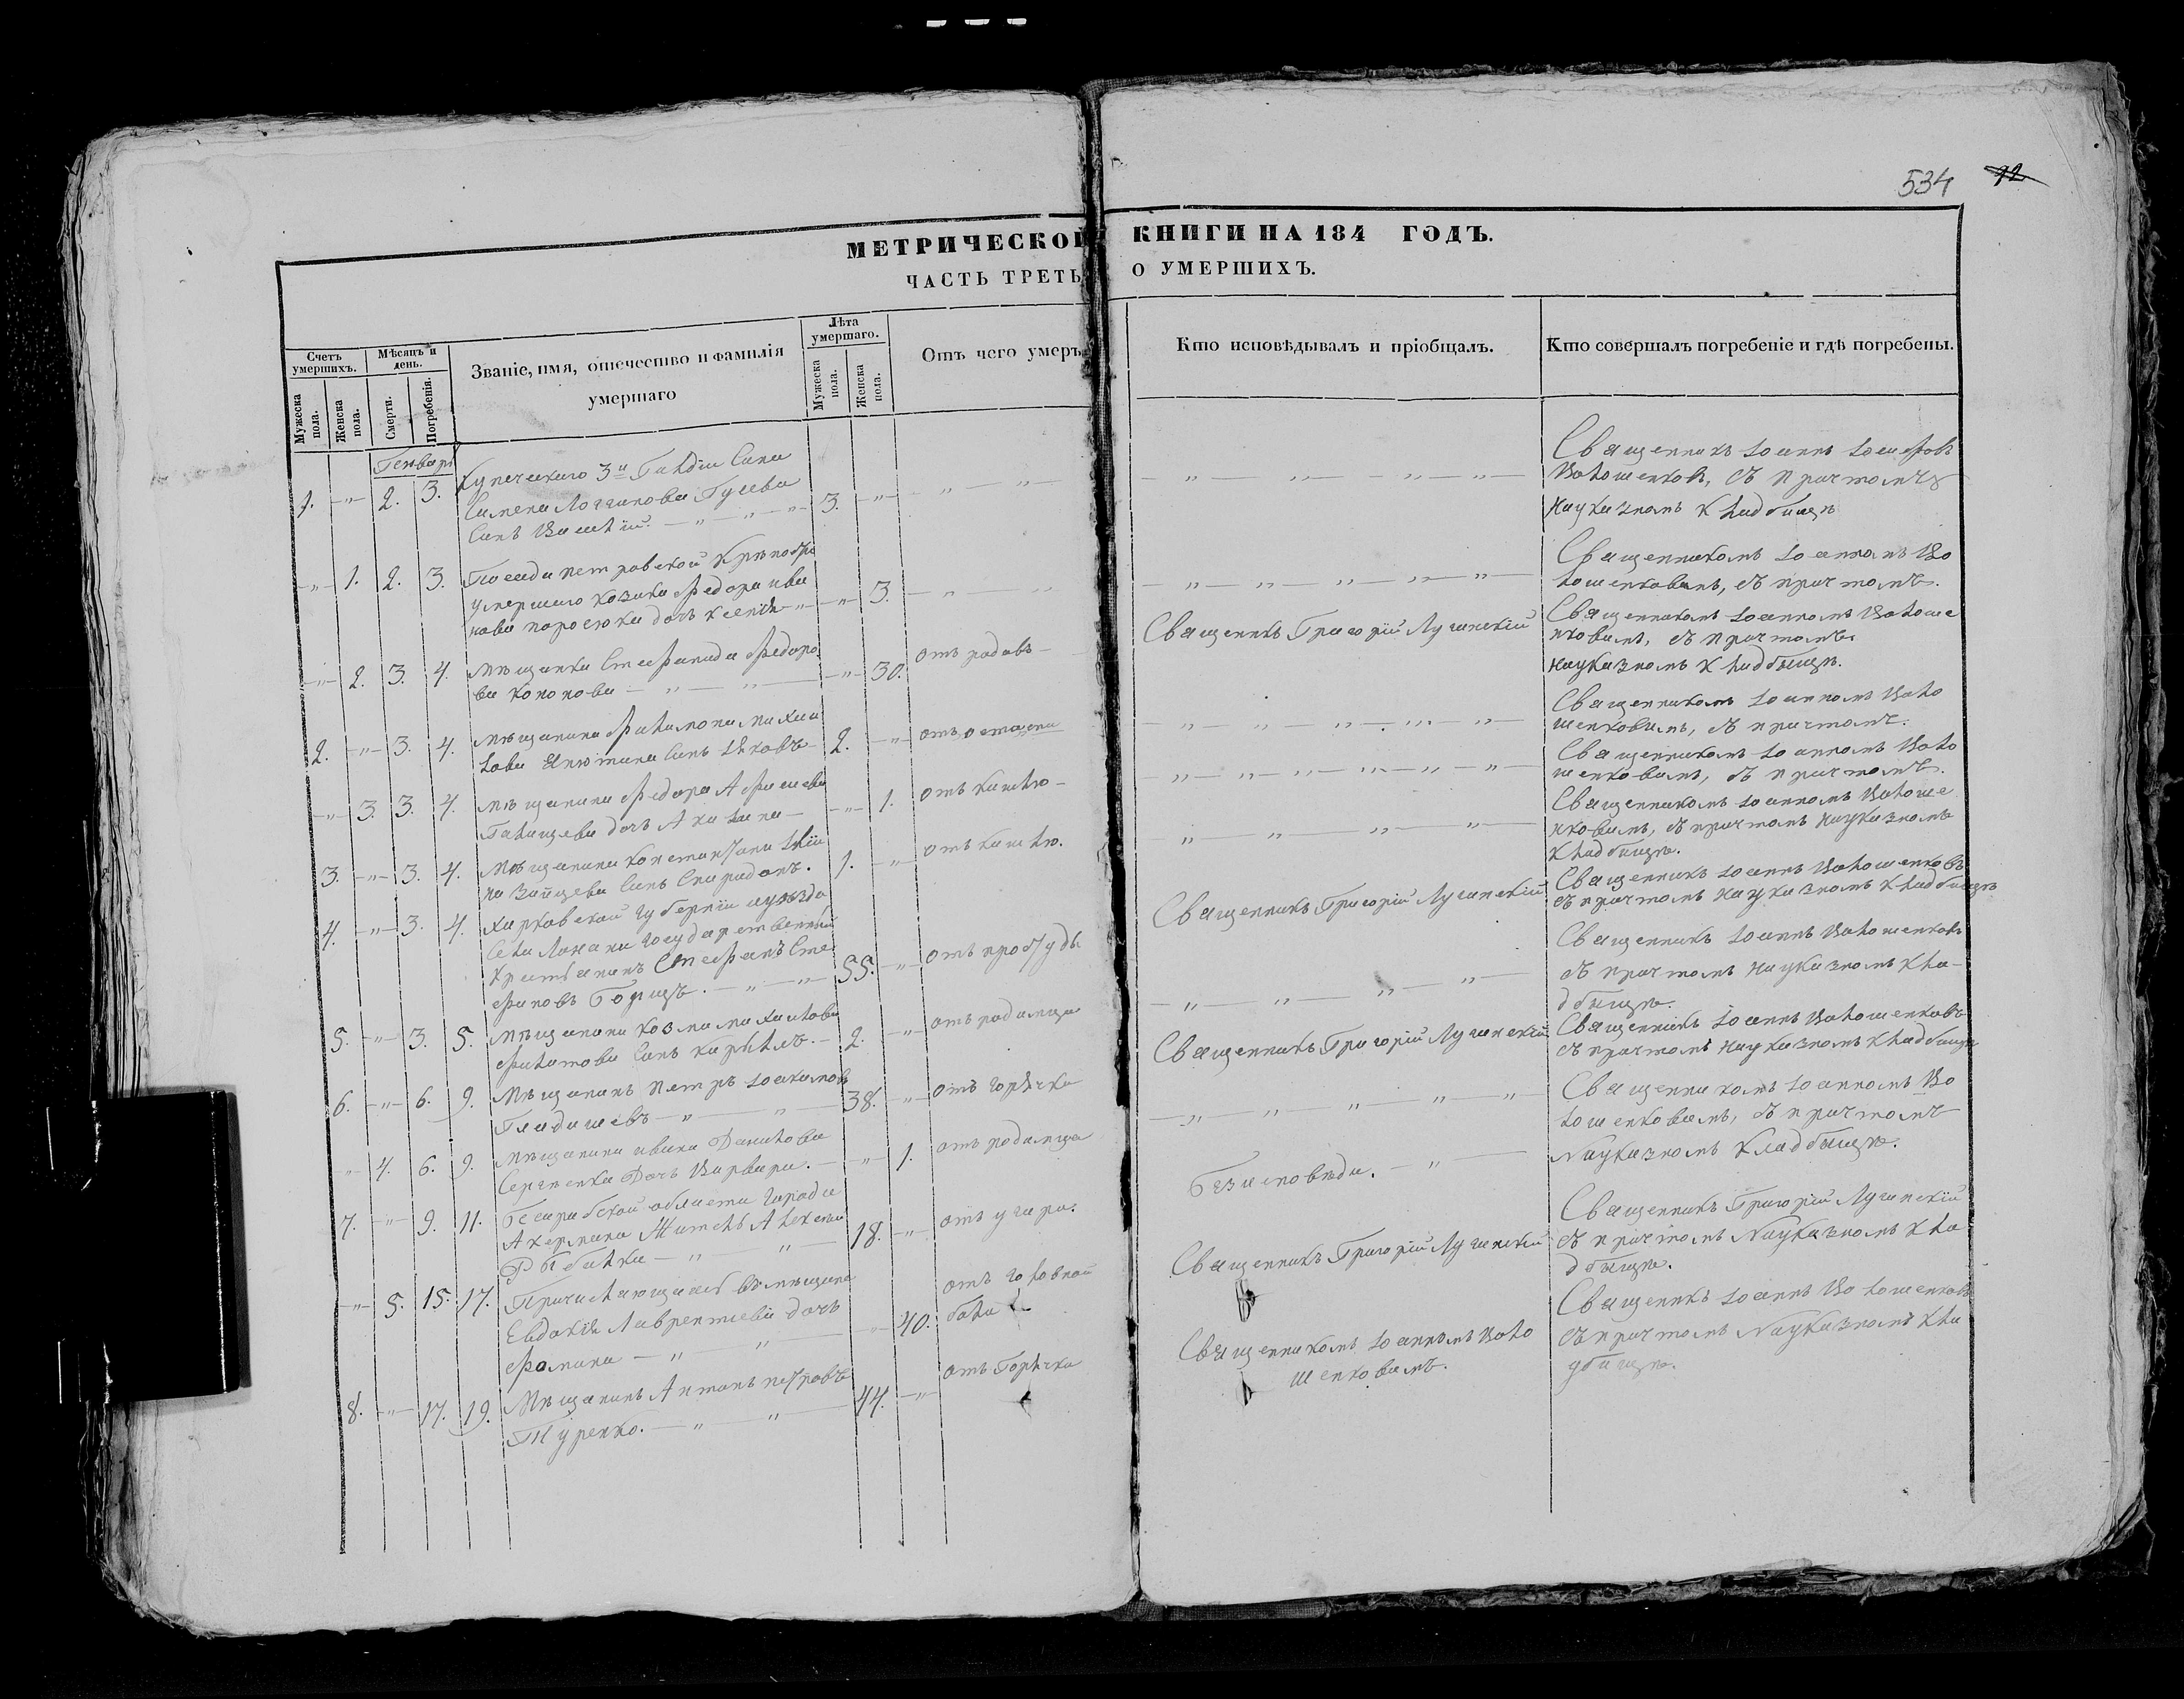 534 92
МЕТРИЧЕСКОЙ КНИГИ НА 184 ГОДЪ.
ЧАСТЬ ТРЕТЬ О УМЕРШИХЪ.
Счетъ умершихъ.
Мужеска пола.
Женска пола.
Мѣсяцъ и день.
Смерти.
Погребенія.
Званіе, имя, отечество и фамилія умершаго
Лѣта умершаго.
Мужеска пола.
Женска пола.
Отъ чего умеръ
Кто исповѣдывалъ и пріобщалъ.
Кто совершалъ погребеніе и гдѣ погребены.
Генварь
1. -"- 2. 3. Купеческаго 3й Гилдіи Сина
Симена Логгинова Гусева
Синъ Василій. -"-"-"- 3. -"- " "
Священникъ Іоаннъ Іосифовъ
Волошенковъ, съ Причтомъ
науказномъ Кладбищѣ
-"- 1. 2. 3. Посада петровской Крѣпости
умершаго козака Федора ива
нова поросюка дочь ксенія -"- 3. " "
Священникомъ Іоанномъ Во
лошенковымъ, съ причтомъ.
-"- 2. 3. 4. Мѣщанка Стефанида Федоро
ва кононова -"-"- -"- 30. отъ родовъ-
Священникъ Григорій Лучинскій
Священникомъ Іоанномъ Волоше
нковымъ, съ причтомъ
науказномъ Кладбищѣ.
2. -"- 3. 4. Мѣщанина Филимона михаи
лова Синъ Яковъ- 2. -"- отъ
Священникомъ Іоанномъ Воло
шенковымъ, съ причтомъ.
-"- 3. 3. 4. Мѣщанина Федора
Галицева дочь Акилина- -"- 1. отъ кашлю-
Священникомъ Іоанномъ Воло
шенковымъ, съ причтомъ.
3. -"- 3. 4. Мѣщанина Константина
на Зайцева Синъ Спиридонъ. 1. -"- отъ кашлю.
Священникомъ Іоанномъ Волоше
нковымъ, съ причтомъ науказномъ
Кладбищѣ.
4. -"- 3. 4. Харковской губерніи
Села Государственный
Крестьянинъ Стефанъ Сте
фановъ -"-"- 55. -"- отъ простуды
Священникъ Григорій Лучинскій
Священникъ Іоаннъ Волошенковъ
съ причтомъ науказномъ Кладбищѣ
5. -"- 3. 5. Мѣщанина козми михаилова
Филатова Синъ кирылъ. - 2. -"- отъ родимца
Священникъ Іоаннъ Волошенковъ
съ причтомъ науказномъ Кла-
дбищѣ.
6. -"- 6. 9. Мѣщанинъ Петръ Іоакимовъ
Гладишевъ -"-"- 38. -"- отъ горячки
Священникъ Григорій Лучинскій
Священникъ Іоаннъ Волошенковъ
съ причтомъ науказномъ Кладбищѣ
-"- 4. 6. 9. Мѣщанина ивана Данилова
Сергѣенка Дочь Варвара. - -"- 1. отъ родимца
Священникомъ Іоанномъ Во
лошенковымъ, съ причтомъ
Науказномъ Кладбищѣ.
7. -"- 9. 11. Бесарабской области города
Акермана Житель Алексѣй
Рыбалка -"-"- 18. -"- отъ угара.
Безисповѣди. -"-
Священникъ Григорій Лучинскій
съ причтомъ Науказномъ Кла
дбищѣ.
-"- 5. 15. 17. Причисляющаясь въмѣщане
Евдокія Лаврентіева дочь
Фомина -"-"- 40. отъ головной
боли
Священникъ Григорій Лучинскій
Священникъ Іоаннъ Волошенковъ
съ причтомъ Науказномъ Кла
дбищѣ.
8. -"- 17. 19. Мѣщанинъ Антонъ петровъ
Туренко. -"-"- 44. -"- отъ Горячки
Священникомъ Іоанномъ Воло
шенковымъ.